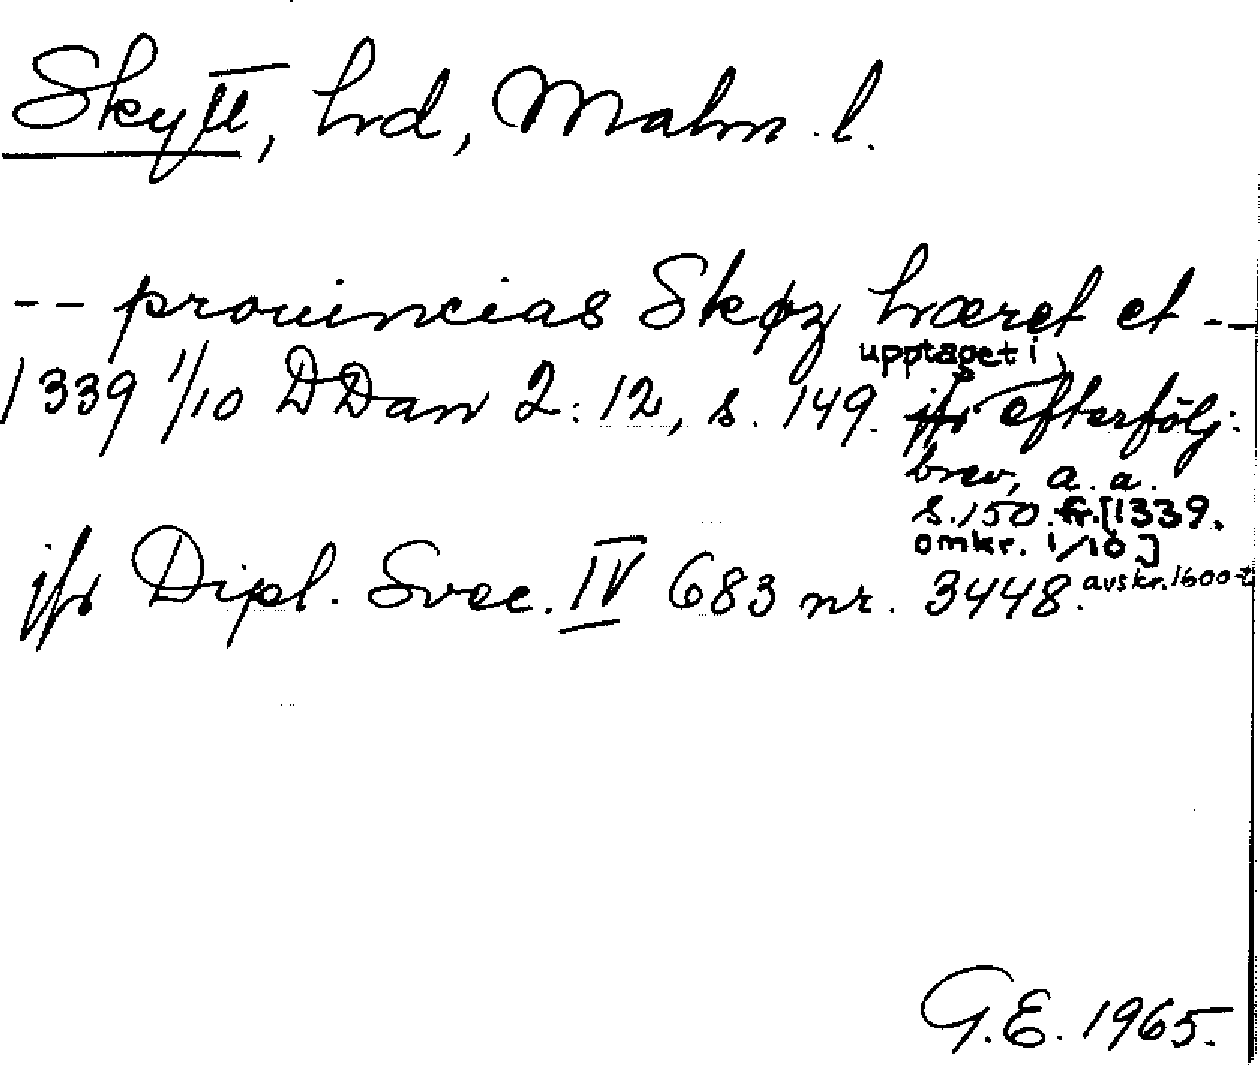 Skytt, hd, Malm. l.
-- prouincias Skøz hæret et --
upptaget i
1339 1/10 DDan 2: 12, s. 149. jfr efterfölj.
brev, a. a.
s. 150 fr. [1339.
omkr. 1/10]
jfr Dipl. Svec. IV 683 nr. 3448. avskr. 1600-t
G.E. 1965.